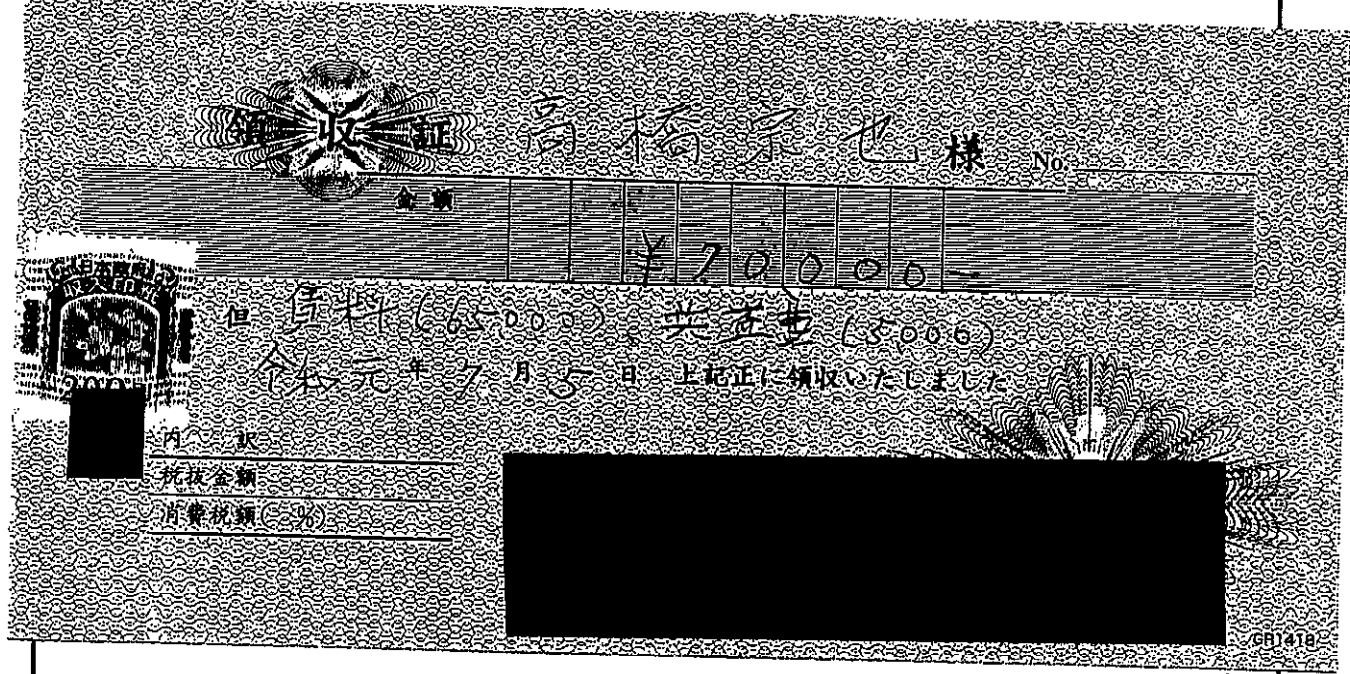 領収証 高橋宗也 様 No.
金額 ¥70000-
日本政府
収入印紙
200円
但 賃料(65000)、共益費(5000)
令和元年7月5日 上記正に領収いたしました
内訳
税抜金額
消費税額( %)
GR1418